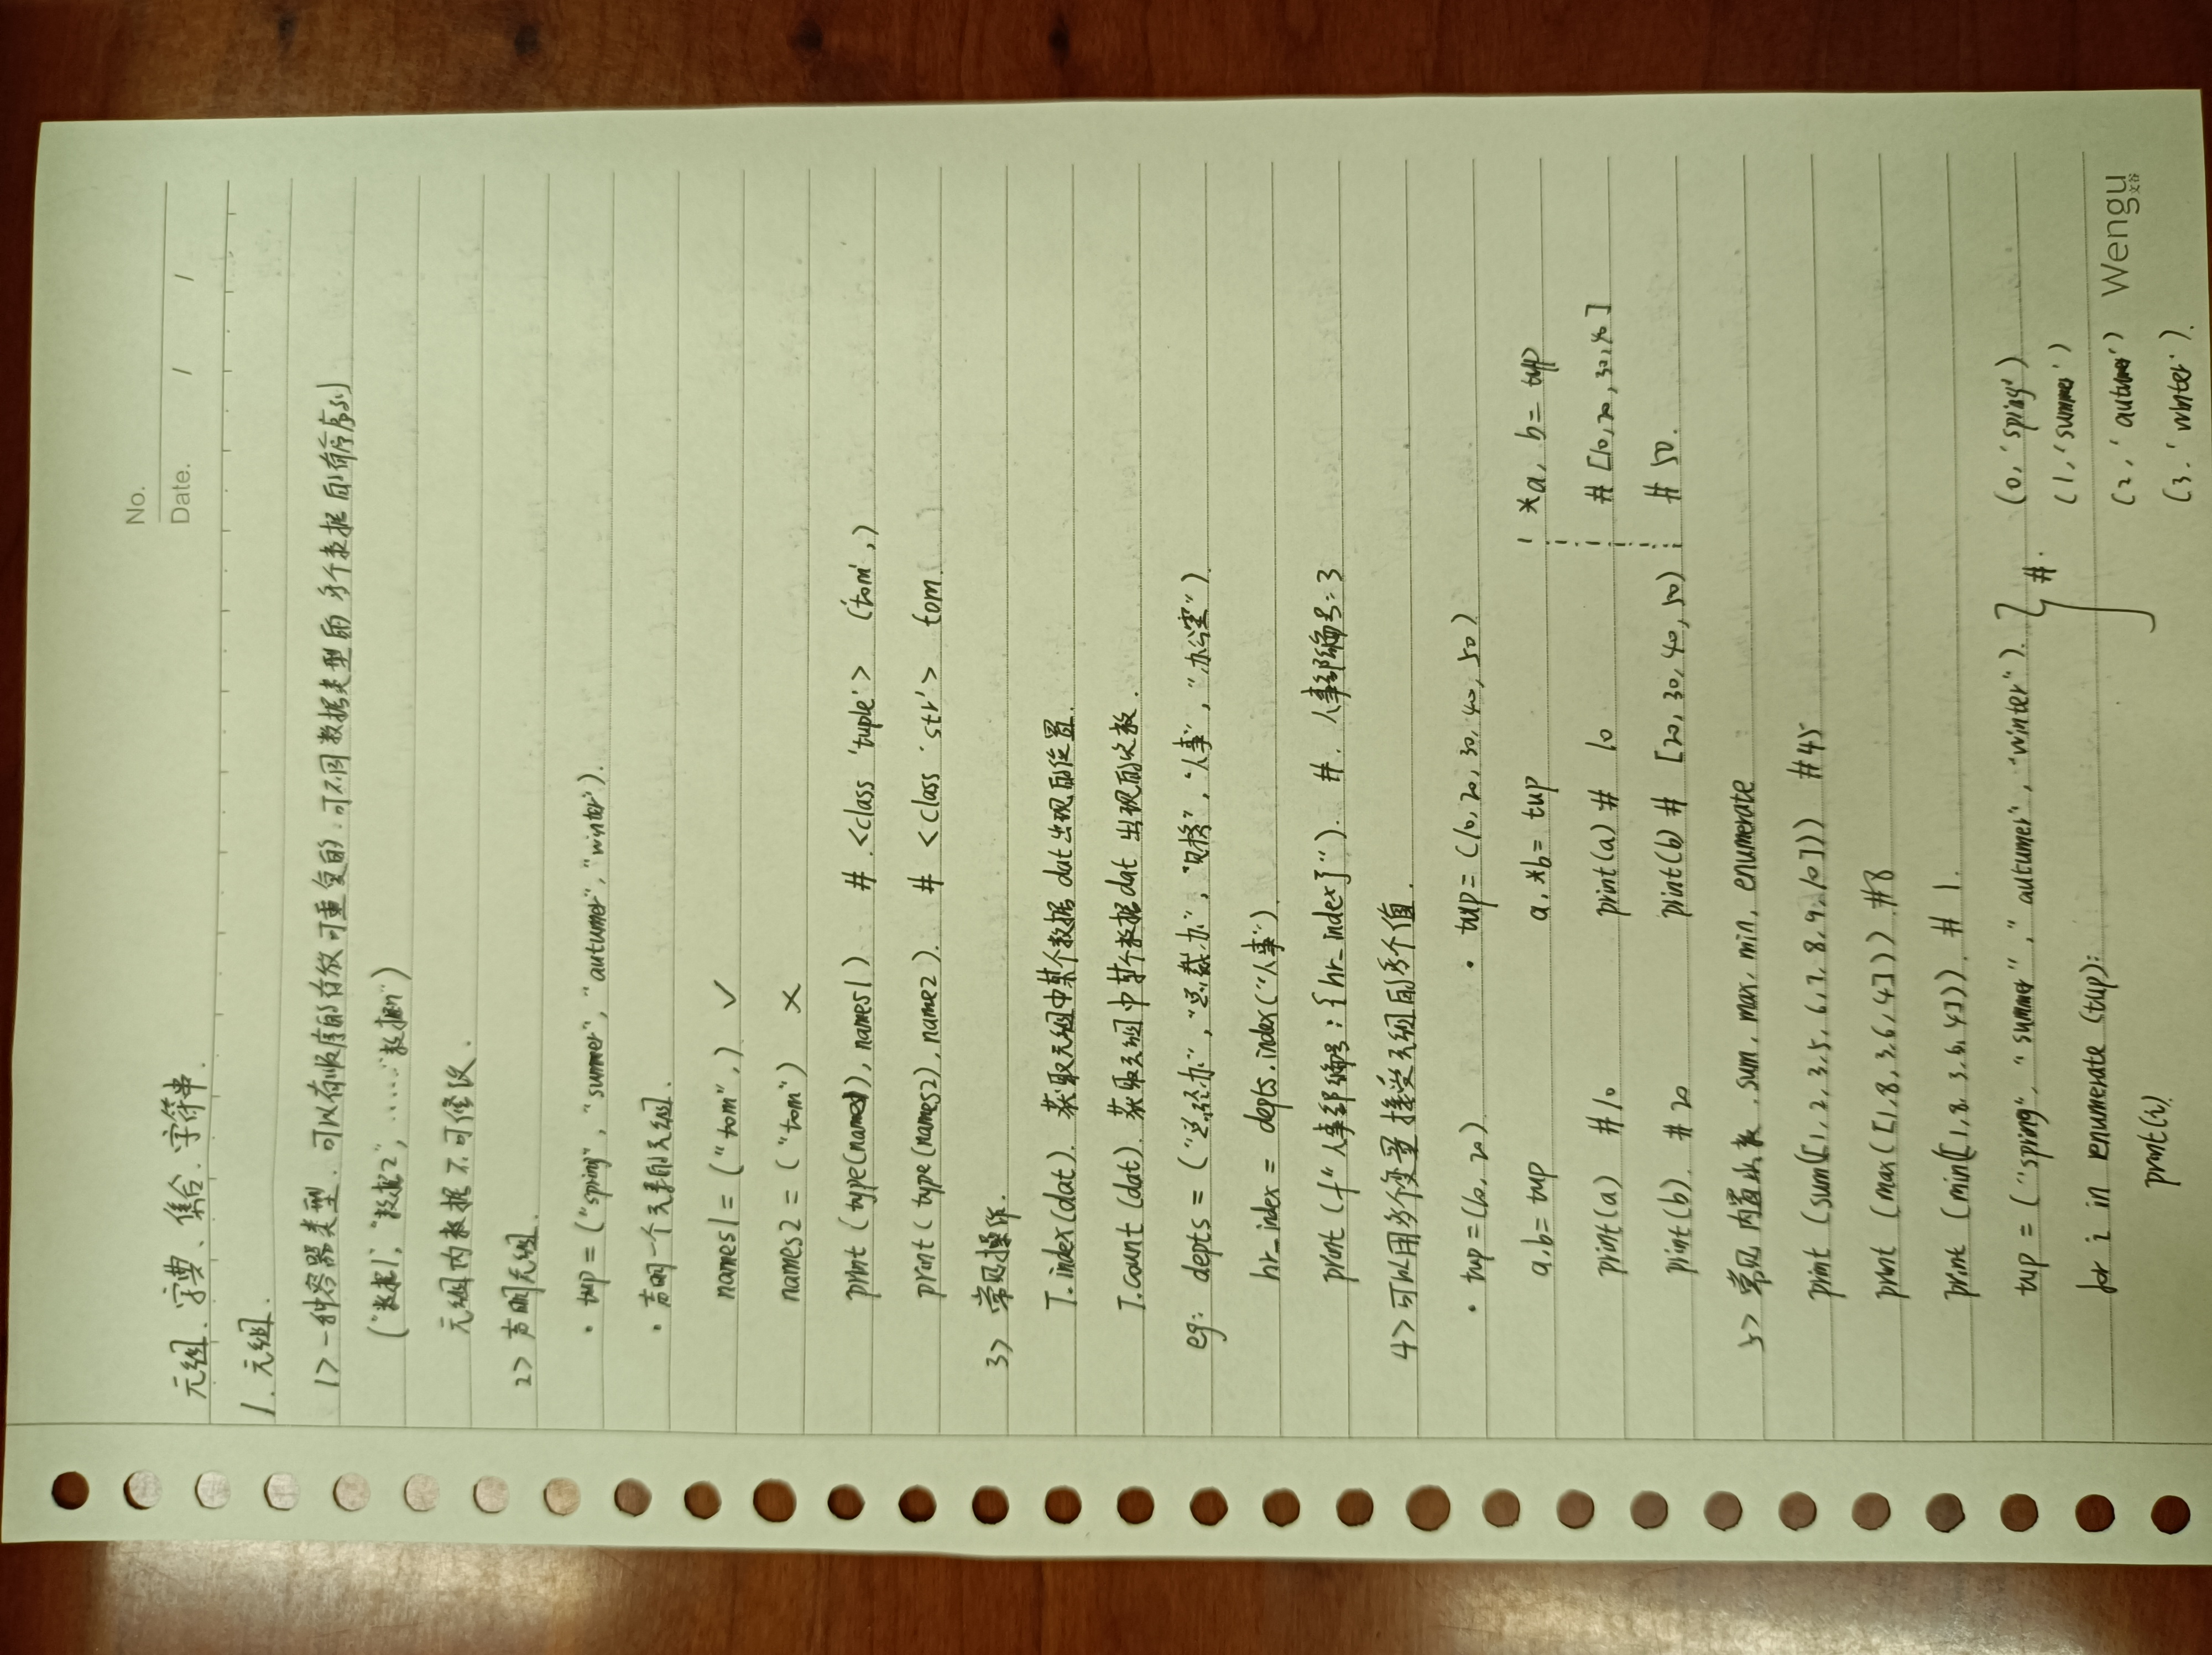 No.
Date. / /
元组、字典、集合、字符串.
1. 元组.
1> 一种容器类型. 可以有顺序的存放可重复的.可不同数据类型的 多个数据的有序序列
("数据1", "数据2", ......"数据n")
元组内数据不可修改.
2> 声明元组.
· tup = ("spring", "summer", "autumer", "winter").
· 声明一个元素的元组.
names1 = ("tom",) ✓
names2 = ("tom") ×
print (type(names1), names1) # <class 'tuple'> ('tom',)
print (type(names2), name2). # <class 'str'> tom.
3> 常见操作.
T.index(dat). 获取元组中某个数据 dat出现的位置.
T.count (dat). 获取元组中某个数据dat 出现的次数.
eg: depts = ("总经办", "总裁办", "财务", "人事", "办公室").
hr_index = depts.index("人事").
print (f"人事部编号:{hr_index}"). #. 人事部编号:3
4> 可以用多个变量接受元组的多个值.
· tup=(10, 20) · tup= (10, 20, 30, 40, 50)
a,b= tup a, *b= tup *a, b= tup
print(a) #10 print(a) # 10 # [10, 20, 30, 40]
print(b). # 20 print(b) # [20, 30, 40, 50) # 50.
5> 常见内置函数. sum, max, min, enumerate
print (sum([1, 2, 3, 5, 6, 7, 8, 9, 10])) #45
print (max([1, 8, 3, 6, 4])) #8
print (min([1, 8, 3, 6, 4])). # 1.
tup = ("spring", "summer", "autumer", "winter"). #. (0, 'spring')
(1, 'summer')
for i in enumerate (tup):
(2, 'autumer')
print(i).
(3, 'winter').
Wengu
文谷